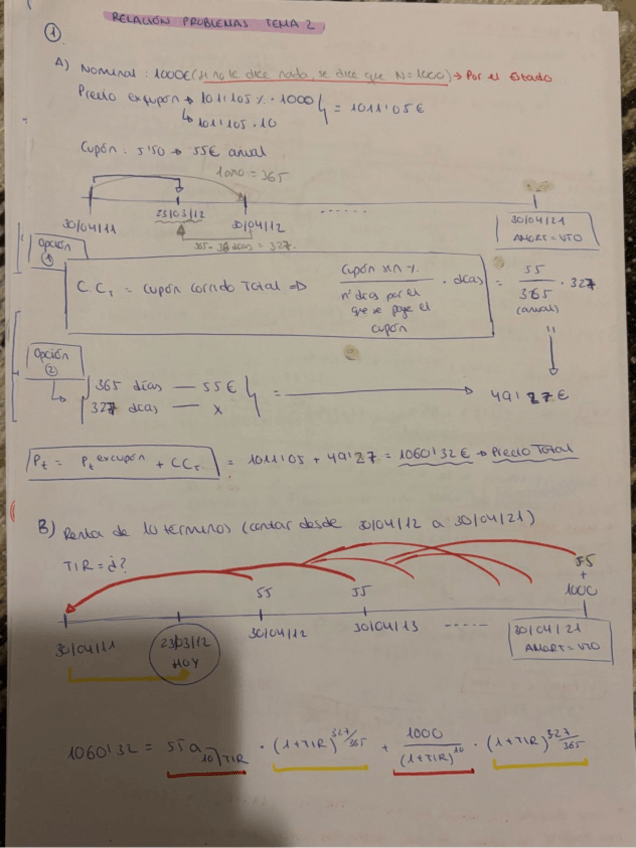 RELACIÓN PROBLEMAS TEMA 2
①
A) Nominal : 1000€ (si no te dice nada, se dice que N=1000) → Por el Estado
Precio excupón → 1011'105 % · 1000 } = 1011'05€
↳ 1011'105 · 10
Cupón : 5'50 → 55€ anual
1 año = 365
30/04/11 23/03/12 30/04/12 ...... 30/04/21
AMORT = VTO
365 - 38 días = 327
Opción ①
C.C_T = Cupón corrido Total ⇒ Cupón en % / nº días por el que se paga el cupón · días = 55 / 365 (anual) · 327
Opción ②
365 días — 55€
327 días — x } = → 49'27€
P_t = P_t excupón + CC_T = 1011'05 + 49'27 = 1060'32€ → Precio Total
B) Renta de 10 términos (contar desde 30/04/12 a 30/04/21)
TIR = ¿?
55 55 55 + 1000
30/04/11 23/03/12 HOY 30/04/12 30/04/13 ----- 30/04/21
AMORT = VTO
1060'32 = 55 a 10⌉TIR · (1+TIR)^327/365 + 1000 / (1+TIR)^10 · (1+TIR)^327/365